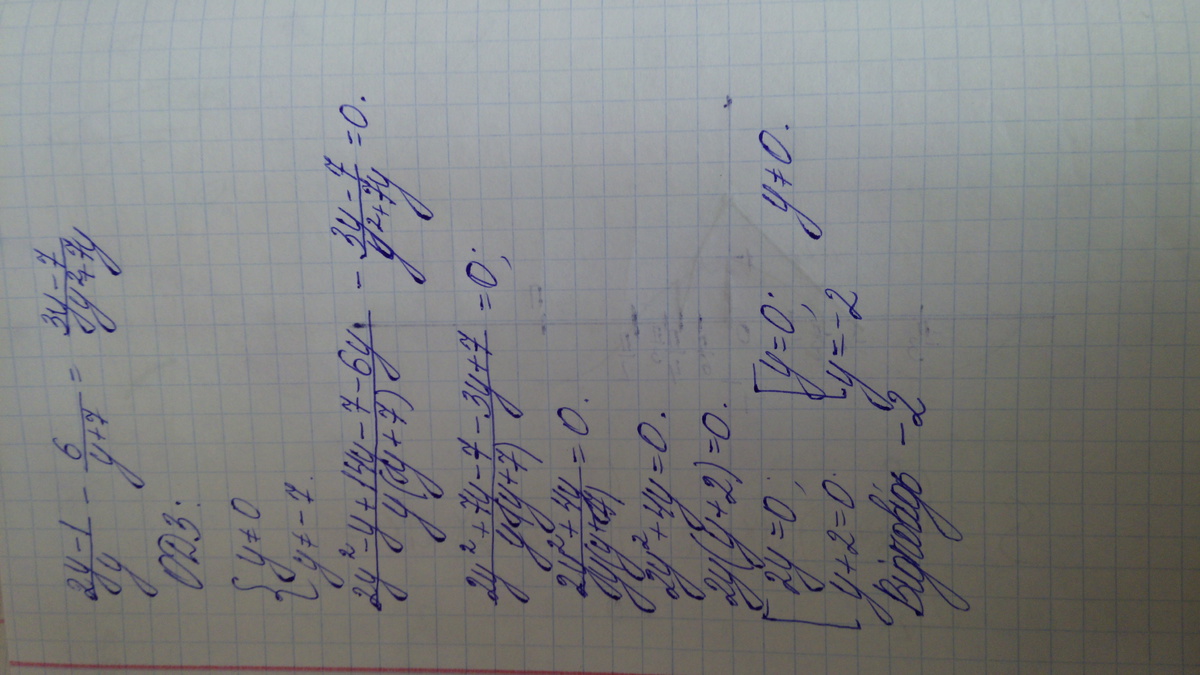 (2y-1)/y - 6/(y+7) = (3y-7)/(y²+7y)
ОДЗ:
{ y≠0
{ y≠-7.
(2y²-y+14y-7-6y)/(y(y+7)) - (3y-7)/(y²+7y) = 0.
(2y²+7y-7-3y+7)/(y(y+7)) = 0;
(2y²+4y)/(y(y+7)) = 0.
2y²+4y=0.
2y(y+2)=0.
[ 2y=0; [ y=0; y≠0.
[ y+2=0. [ y=-2
Відповідь -2